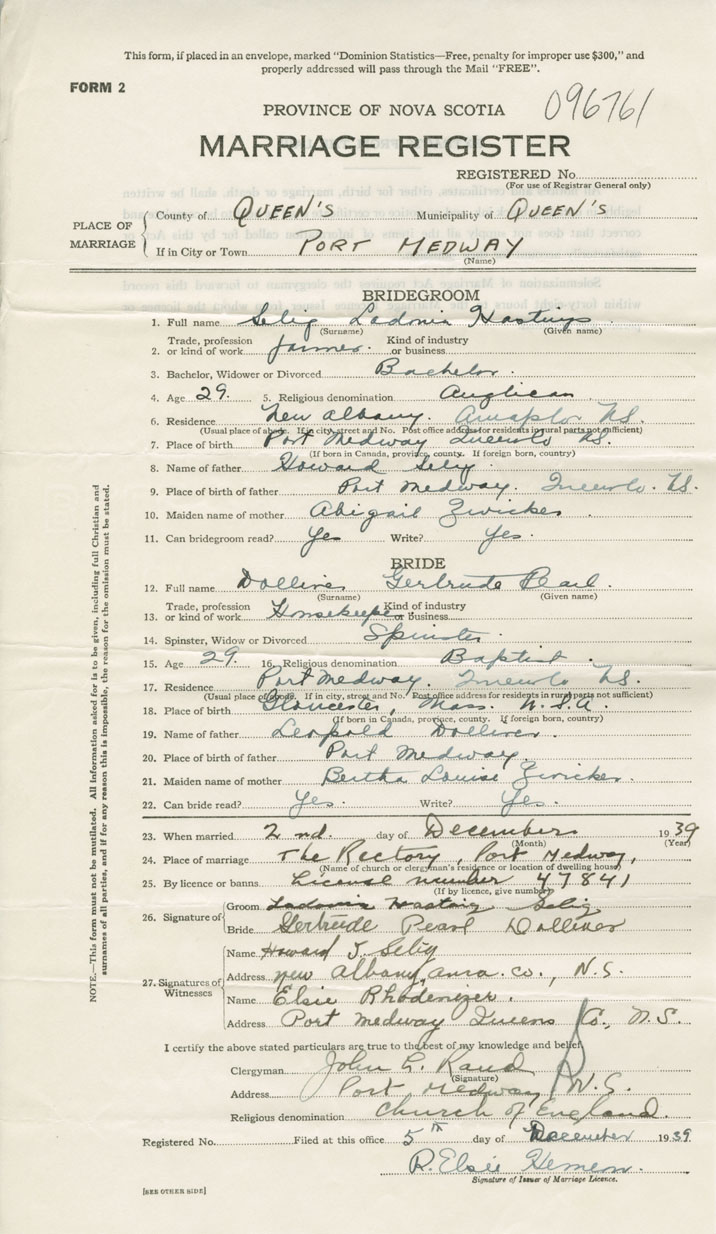 This form, if placed in an envelope, marked "Dominion Statistics—Free, penalty for improper use $300," and
properly addressed will pass through the Mail "FREE".
FORM 2
096761
PROVINCE OF NOVA SCOTIA
MARRIAGE REGISTER
REGISTERED No.
(For use of Registrar General only)
PLACE OF MARRIAGE
County of QUEEN'S Municipality of QUEEN'S
If in City or Town PORT MEDWAY
(Name)
BRIDEGROOM
1. Full name Selig Ladonia Hastings
(Surname) (Given name)
2. Trade, profession or kind of work farmer. Kind of industry or business
3. Bachelor, Widower or Divorced Bachelor.
4. Age 29. 5. Religious denomination Anglican
6. Residence New Albany. N.S.
(Usual place of abode. If in city, street and No. Post office address for residents in rural parts not sufficient)
7. Place of birth Port Medway Queens Co N.S.
(If born in Canada, province, county. If foreign born, country)
8. Name of father Howard Selig.
9. Place of birth of father Port Medway. Queens Co. N.S.
10. Maiden name of mother Abigail Zwicker
11. Can bridegroom read? Yes Write? Yes.
BRIDE
12. Full name Dolliver Gertrude Pearl.
(Surname) (Given name)
13. Trade, profession or kind of work Housekeeper Kind of industry or business
14. Spinster, Widow or Divorced Spinster.
15. Age 29. 16. Religious denomination Baptist.
17. Residence Port Medway. Queens Co N.S.
(Usual place of abode. If in city, street and No. Post office address for residents in rural parts not sufficient)
18. Place of birth Gloucester, Mass. U.S.A.
(If born in Canada, province, county. If foreign born, country)
19. Name of father Leopold Dolliver.
20. Place of birth of father Port Medway
21. Maiden name of mother Bertha Louise Zwicker.
22. Can bride read? Yes. Write? Yes.
23. When married 2nd. day of December 1939
(Month) (Year)
24. Place of marriage The Rectory, Port Medway,
(Name of church or clergyman's residence or location of dwelling house)
25. By licence or banns License number 47841
(If by licence, give number)
26. Signature of
Groom Ladonia Hastings Selig
Bride Gertrude Pearl Dolliver
27. Signatures of Witnesses
Name Howard J. Selig
Address New Albany, Anna. Co., N.S.
Name Elsie Rhodenizer.
Address Port Medway Queens Co., N.S.
I certify the above stated particulars are true to the best of my knowledge and belief.
Clergyman John L. Rand
(Signature)
Address Port Medway N.S.
Religious denomination Church of England.
Registered No. Filed at this office 5th day of December 1939
R. Elsie
Signature of Issuer of Marriage Licence.
[SEE OTHER SIDE]
NOTE.—This form must not be mutilated. All information asked for is to be given, including full Christian and
surnames of all parties, and if for any reason this is impossible, the reason for the omission must be stated.